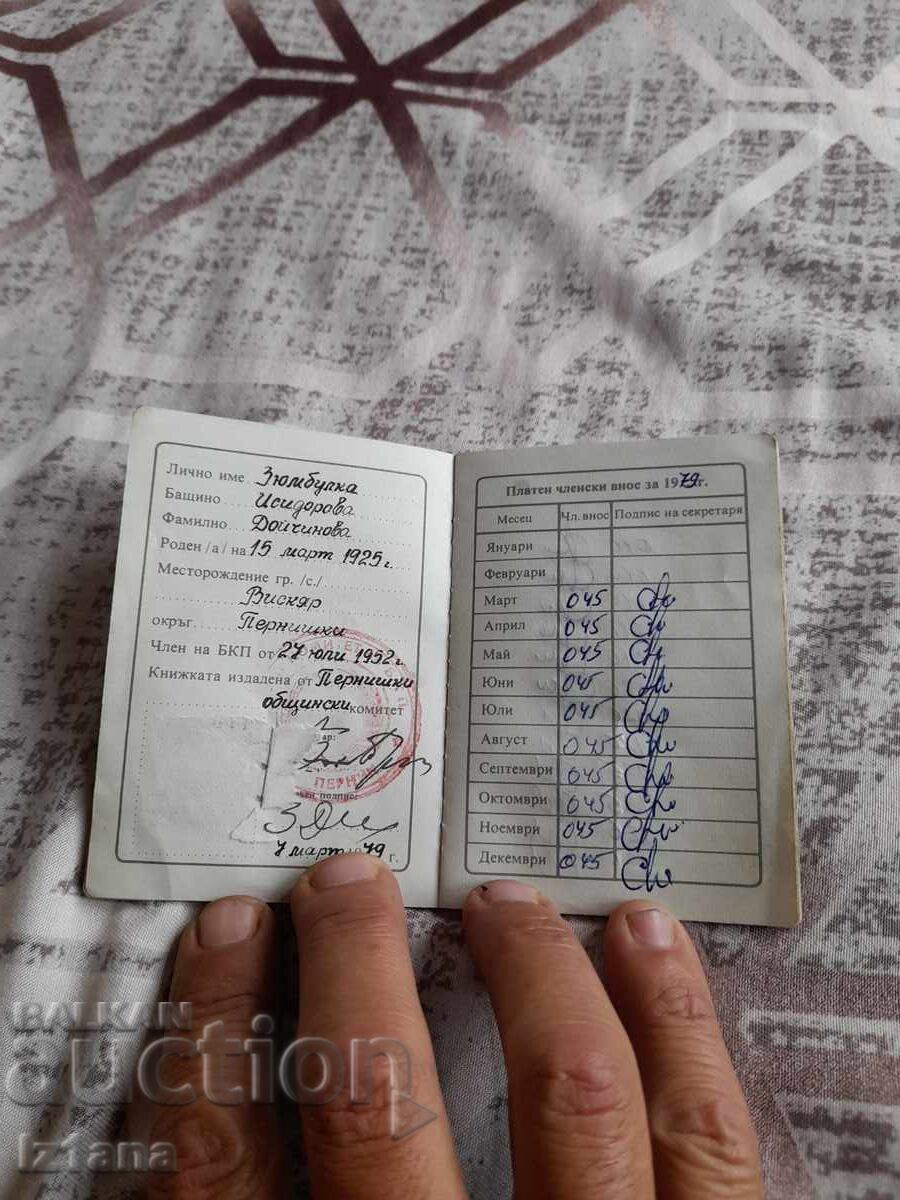 Лично име Зюмбулка
Бащино Исидорова
Фамилно Дойчинова
Роден /а/ на 15 март 1925 г.
Месторождение гр. /с./
Вискяр
окръг Пернишки
Член на БКП от 27 юли 1952 г.
Книжката издадена от Пернишки
общински комитет
ПЕРНИК
подпис:
7 март 1979 г.
Платен членски внос за 1979 г.
Месец Чл. внос Подпис на секретаря
Януари
Февруари
Март 045
Април 045
Май 045
Юни 045
Юли 045
Август 045
Септември 045
Октомври 045
Ноември 045
Декември 045
BALKAN
auction
iztana